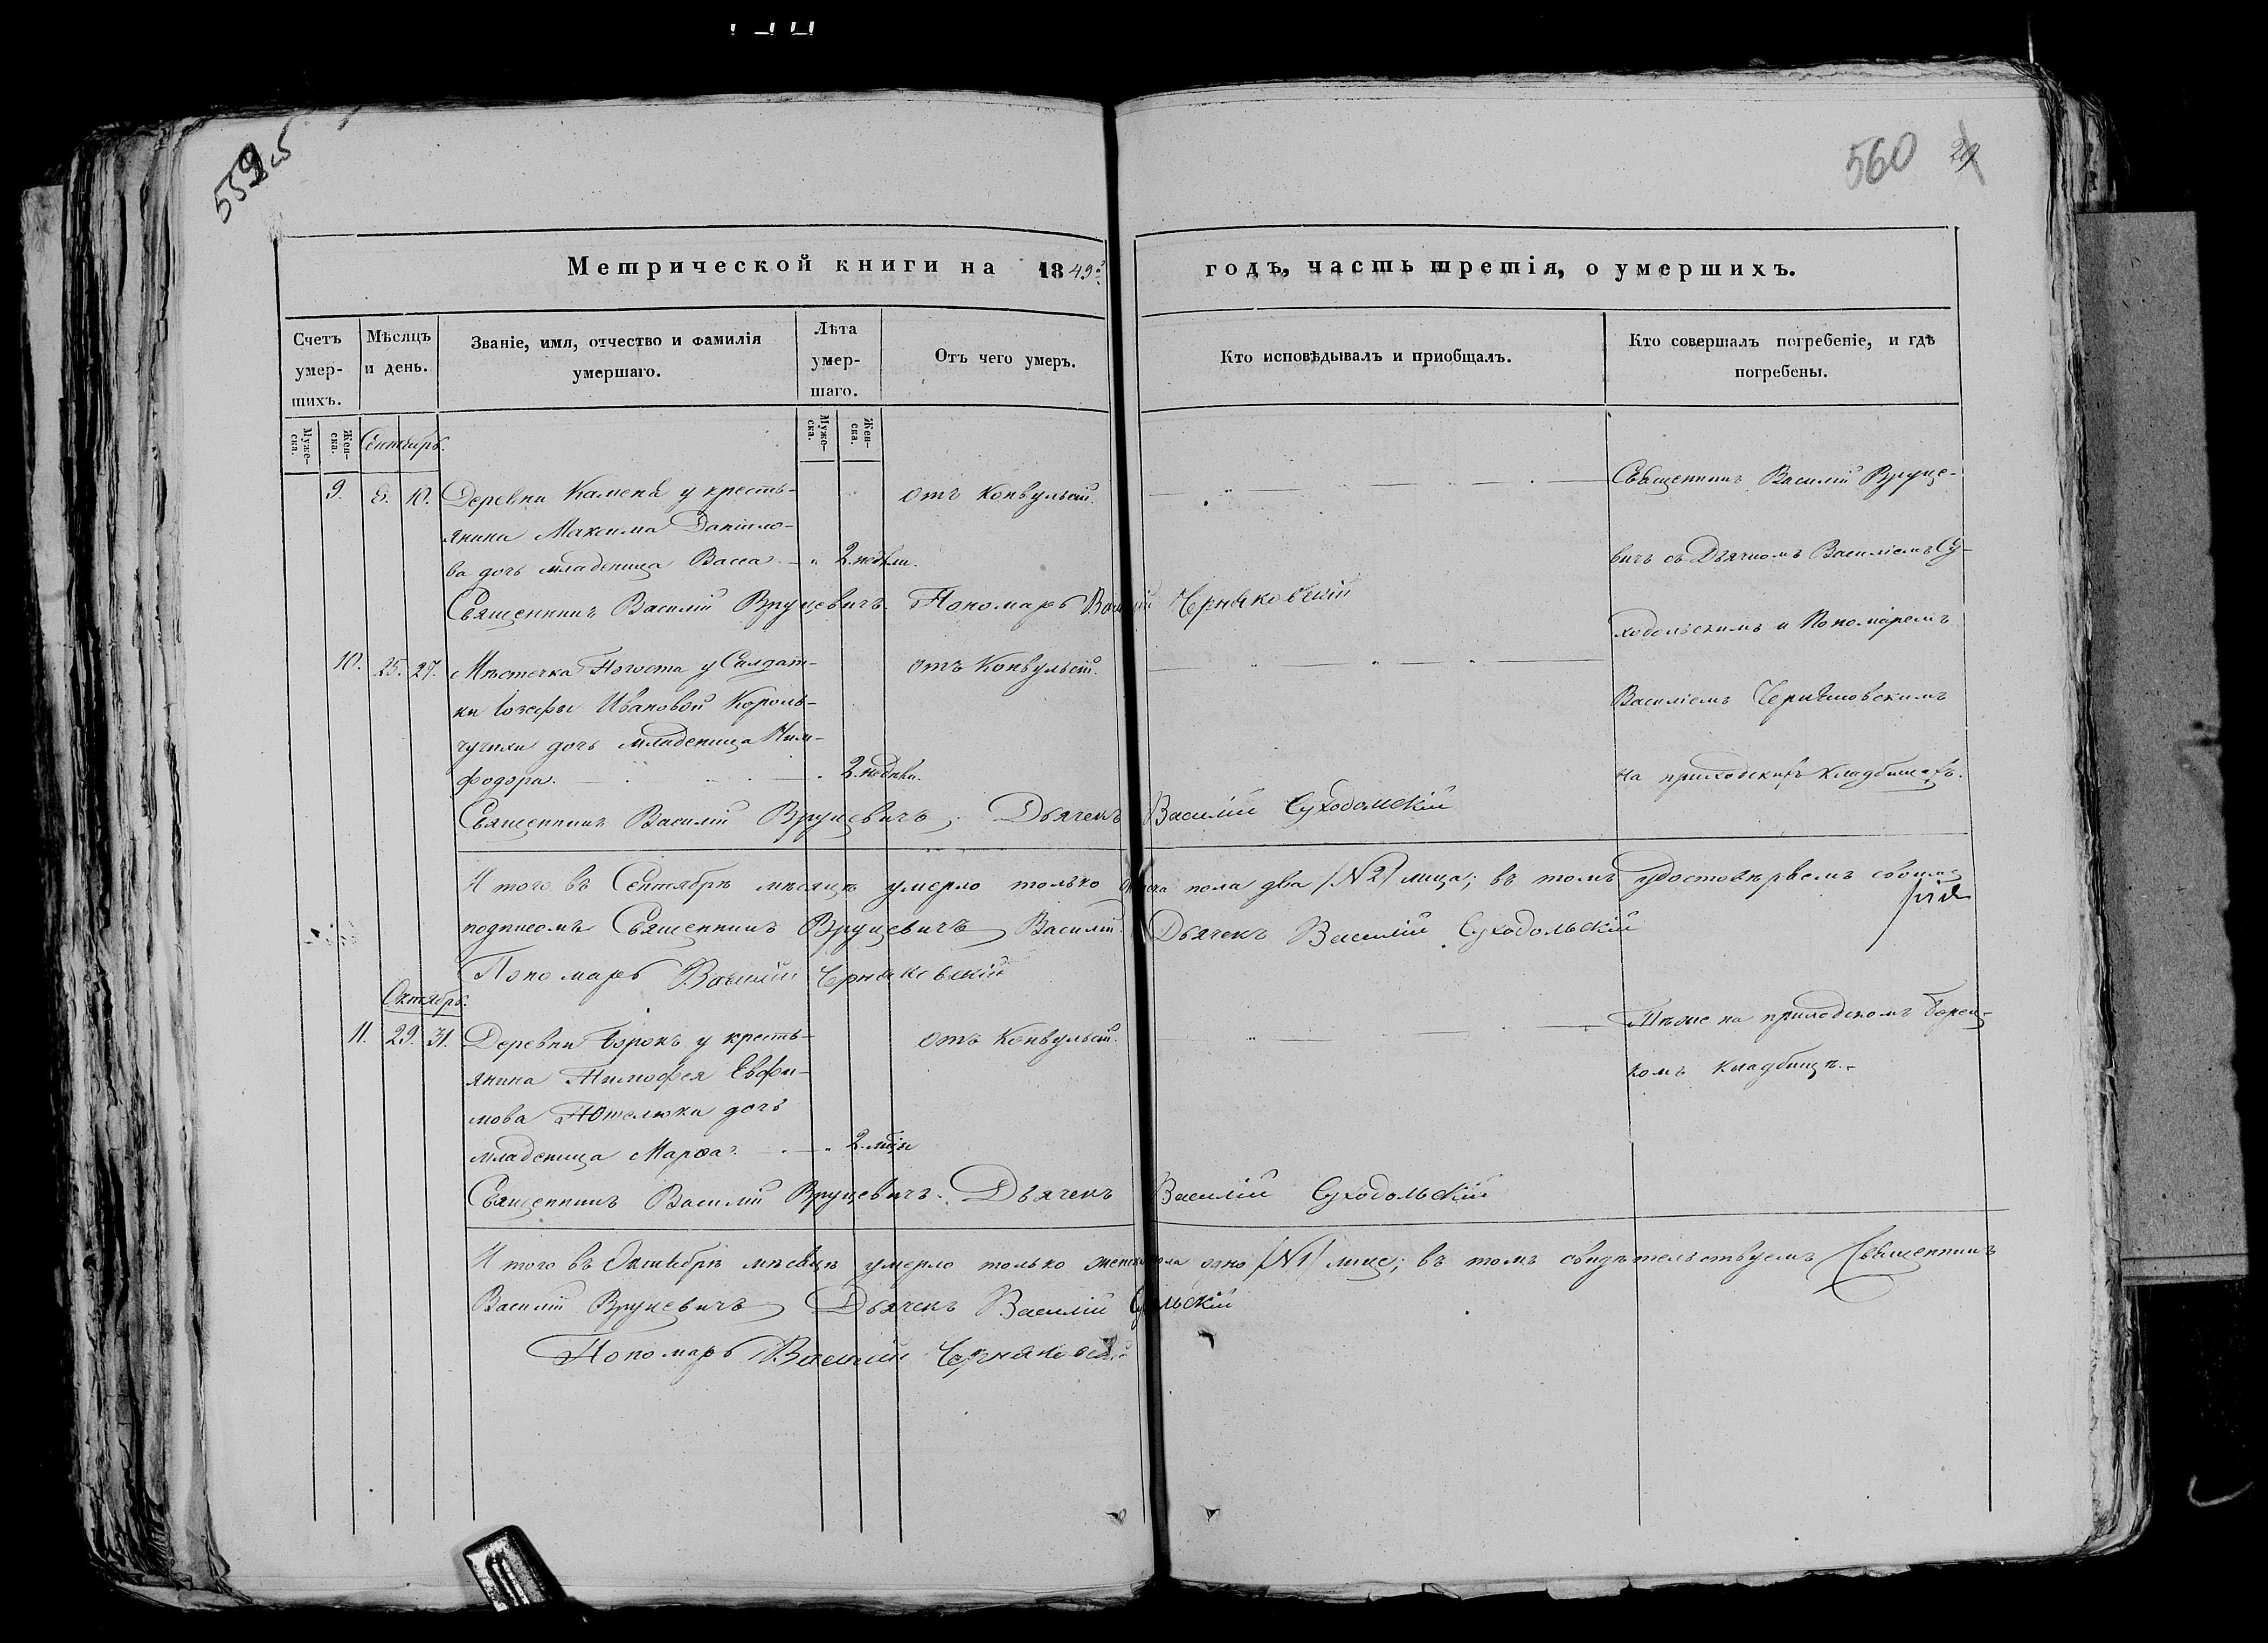 559
560
Метрической книги на 1849 годъ, часть третія, о умершихъ.
Счетъ умер-шихъ.
Мѣсяцъ и день.
Званіе, имя, отчество и фамилія умершаго.
Лѣта умер-шаго.
Отъ чего умеръ.
Кто исповѣдывалъ и приобщалъ.
Кто совершалъ погребеніе, и гдѣ погребены.
Муже-ска.
Жен-ска.
Муже-ска.
Жен-ска.
Сентябрь.
9. 8. 10. Деревни Каменя у кресть-
янина Максима Даніило-
ва дочь младеница Васса 2. недѣли.
отъ Конвульсій.
Священникъ Василій Вруце-
вичъ съ Дьячкомъ Василіемъ Су-
ходольскимъ и Пономаремъ
Василіемъ
на приходскихъ кладбищахъ.
Священникъ Василій Вруцевичъ. Пономарь Василій Черняковскій
10. 25. 27. Мѣстечка Погоста у Салдат-
ки Іозефы Ивановой Король-
чучихи дочь младеница Ним-
фодора. 2. недѣли.
отъ Конвульсій.
Священникъ Василій Вруцевичъ, Дьячекъ Василій Суходольскій
И того въ Сентябрѣ мѣсяцѣ умерло только пола два /№ 2/ лица; въ томъ удостовѣряемъ своимъ
подписомъ Священникъ Вруцевичъ Василій. Дьячекъ Василій Суходольскій
Пономарь Василій Черняковскій
Октябрь.
11. 29. 31. Деревни Борокъ у кресть-
янина Тимофея Евфи-
мова дочь
младеница Марѳа 2. мѣсяца
отъ Конвульсій.
Тѣже на приходскомъ
комъ кладбищѣ.
Священникъ Василій Вруцевичъ. Дьячекъ Василій Суходольскій
И того въ Октябрѣ мѣсяцѣ умерло только женска пола одно /№ 1/ лице; въ томъ свидѣтельствуемъ Священникъ
Василій Вруцевичъ Дьячекъ Василій
Пономарь Василій Черняковскій